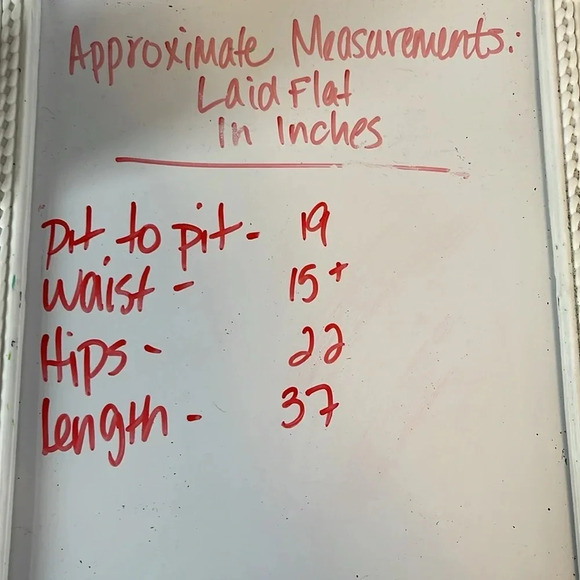 Approximate Measurements:
Laid Flat
In Inches
Pit to pit - 19
Waist - 15+
Hips - 22
Length - 37